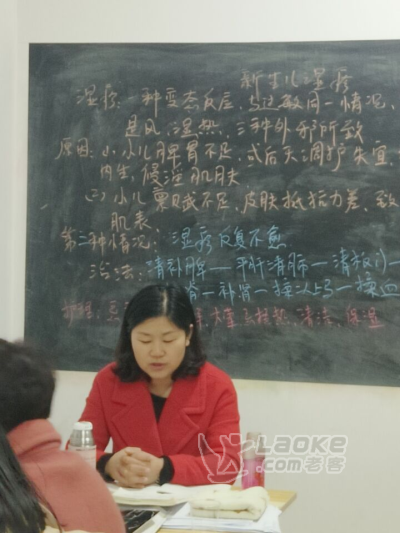 新生儿湿疹
湿疹:一种变态反应,与过敏同一情况、
是风、湿热、三种外邪所致
原因:小儿脾胃不足,或后天调护失宜
内生,侵淫肌肤
小儿禀赋不足,皮肤抵抗力差,致
肌表.
第三种情况:湿疹反复不愈
治法:清补脾—平肝清肺—清
肾—补肾—揉
清洁、保湿
LAOKE
.com老客